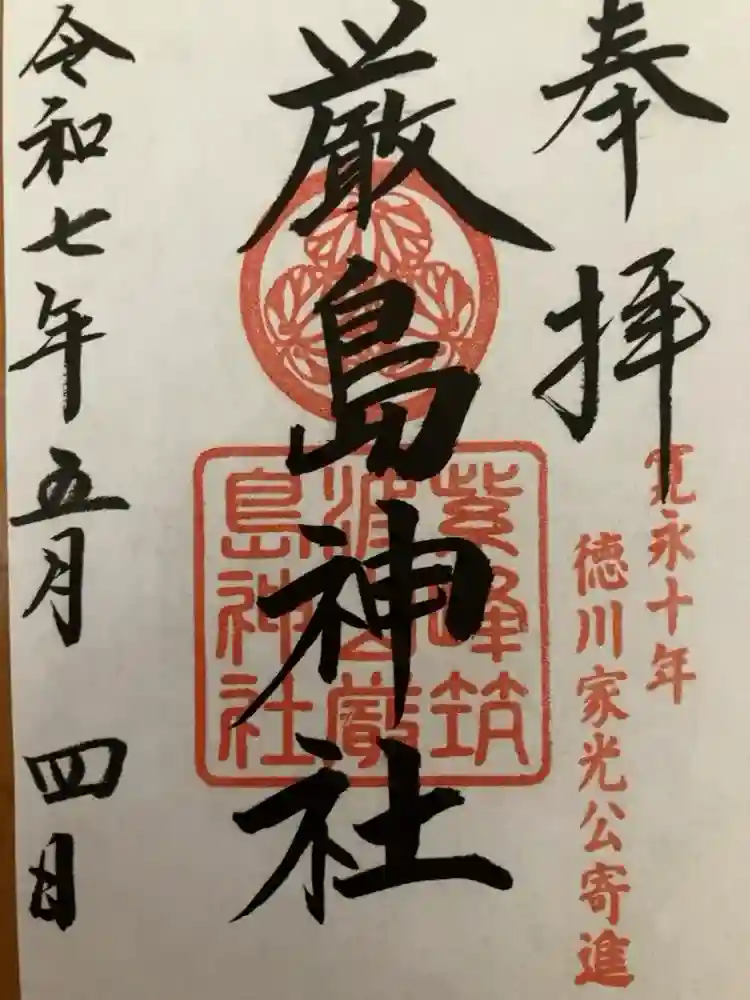 奉拝
寛永十年
徳川家光公寄進
厳島神社
紫峰筑
波山厳
島神社
令和七年五月四日